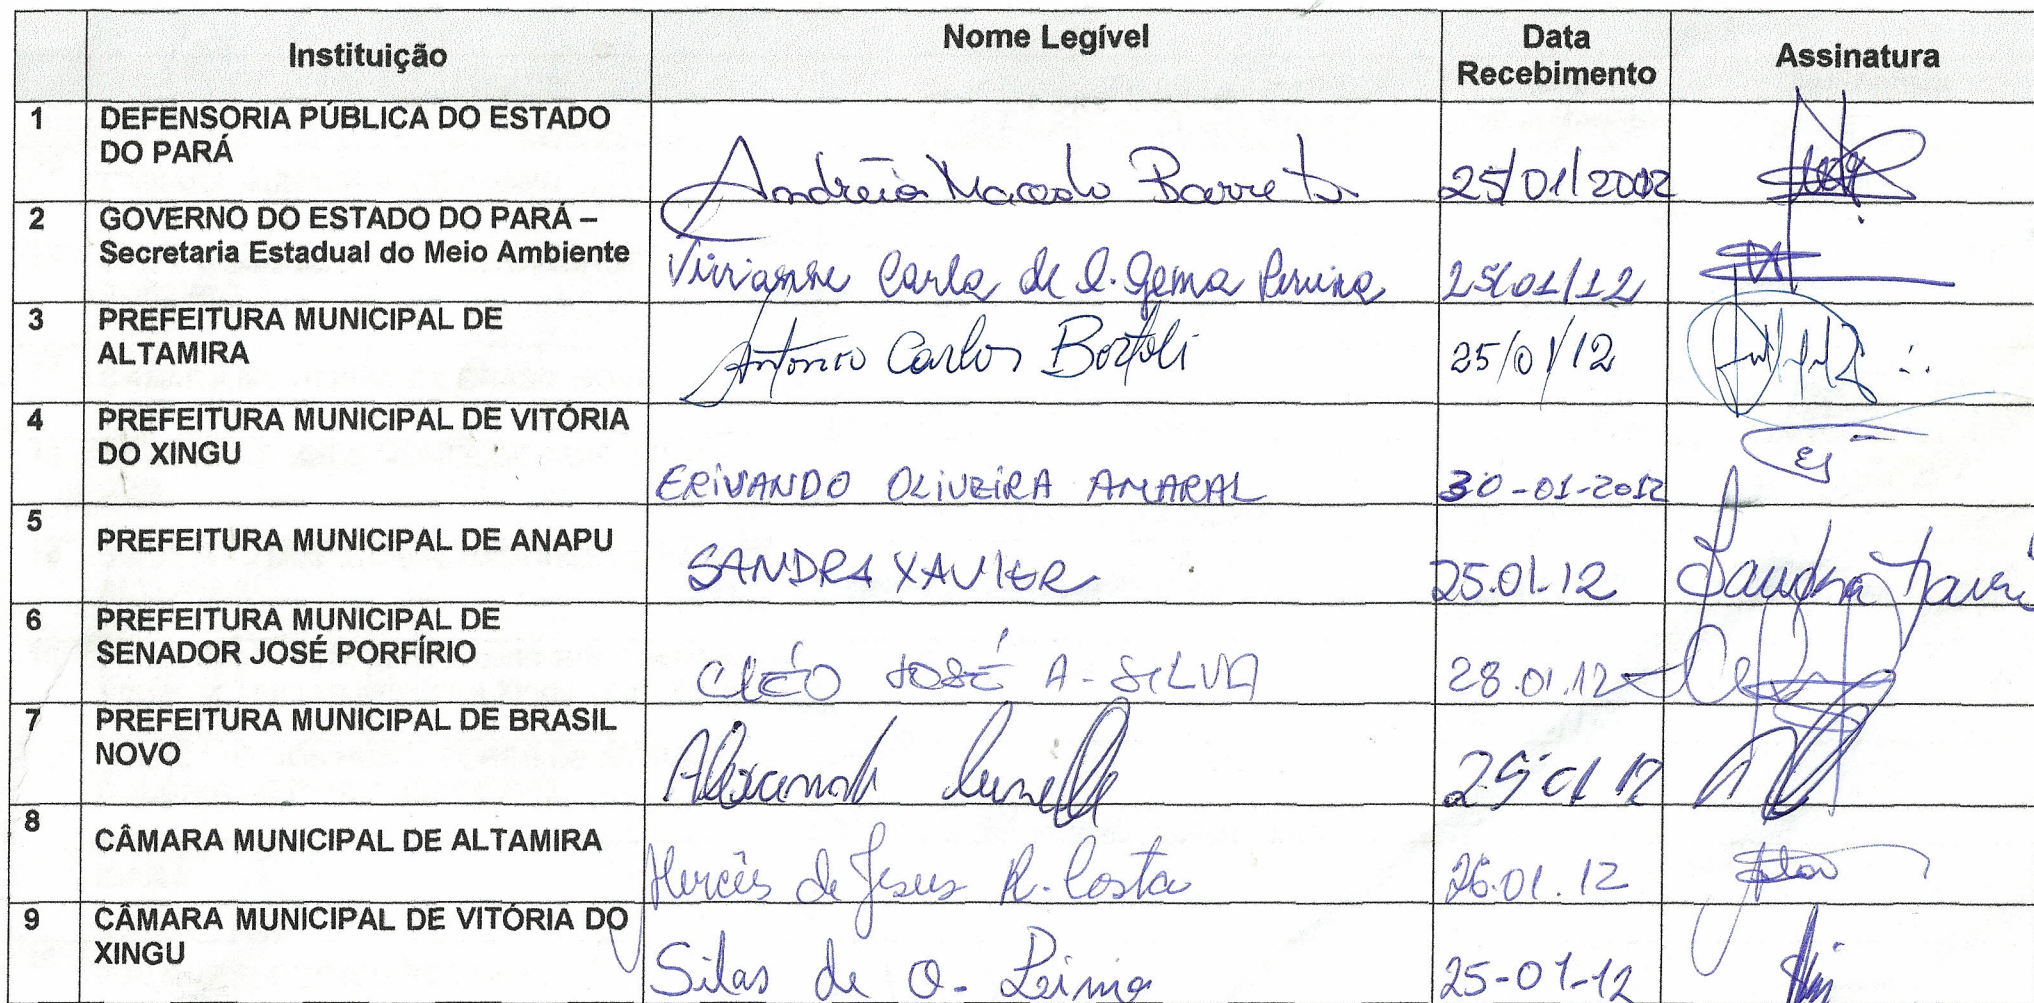 Instituição Nome Legível Data Recebimento Assinatura
1 DEFENSORIA PÚBLICA DO ESTADO
DO PARÁ Andreia Macedo Barreto 25/01/2002
2 GOVERNO DO ESTADO DO PARÁ –
Secretaria Estadual do Meio Ambiente Carla de 25/01/12
3 PREFEITURA MUNICIPAL DE
ALTAMIRA Antonio Carlos Bortoli 25/01/12
4 PREFEITURA MUNICIPAL DE VITÓRIA
DO XINGU ERIVANDO OLIVEIRA AMARAL 30-01-2012
5 PREFEITURA MUNICIPAL DE ANAPU SANDRA XAVIER 25.01.12 Sandra
6 PREFEITURA MUNICIPAL DE
SENADOR JOSÉ PORFÍRIO CLÉO JOSÉ A-SILVA 28.01.12
7 PREFEITURA MUNICIPAL DE BRASIL
NOVO 01 12
8 CÂMARA MUNICIPAL DE ALTAMIRA Mercês de Jesus R. Costa 26.01.12
9 CÂMARA MUNICIPAL DE VITÓRIA DO
XINGU Silas de O. 25-01-12